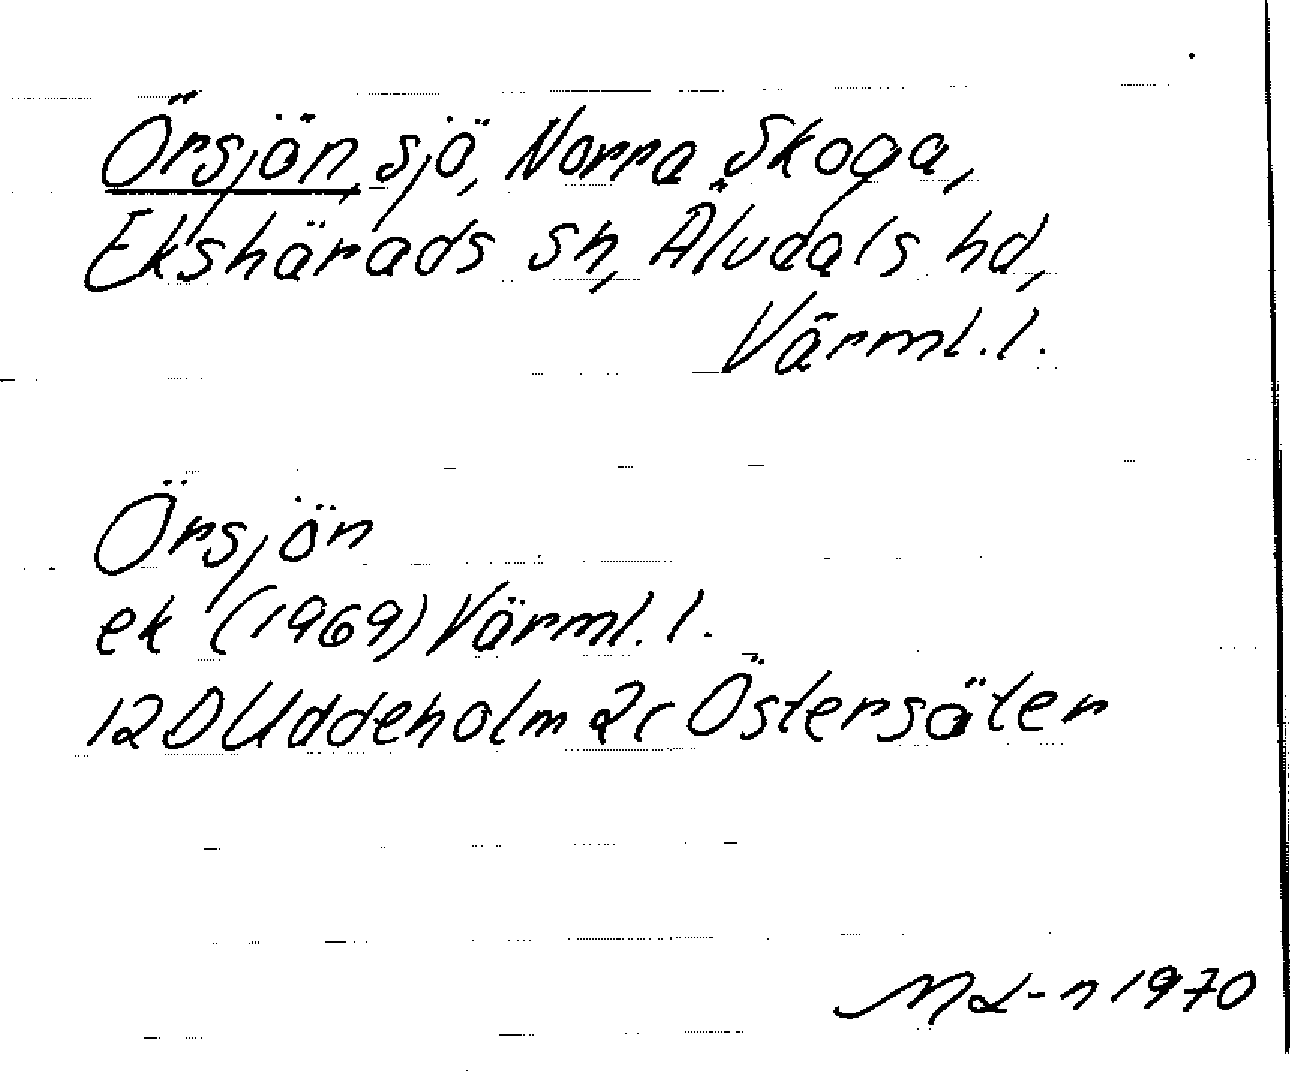 Örsjön, sjö, Norra Skoga,
Ekshärads sn, Älvdals hd,
Värml. l.
Örsjön
ek (1969) Värml. l.
12D Uddeholm 2c Östersäter
1970